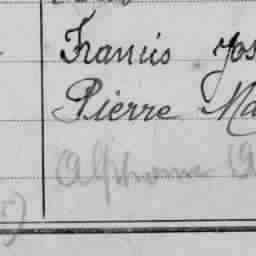 Francis Jos
Pierre Ma
Alphonse A